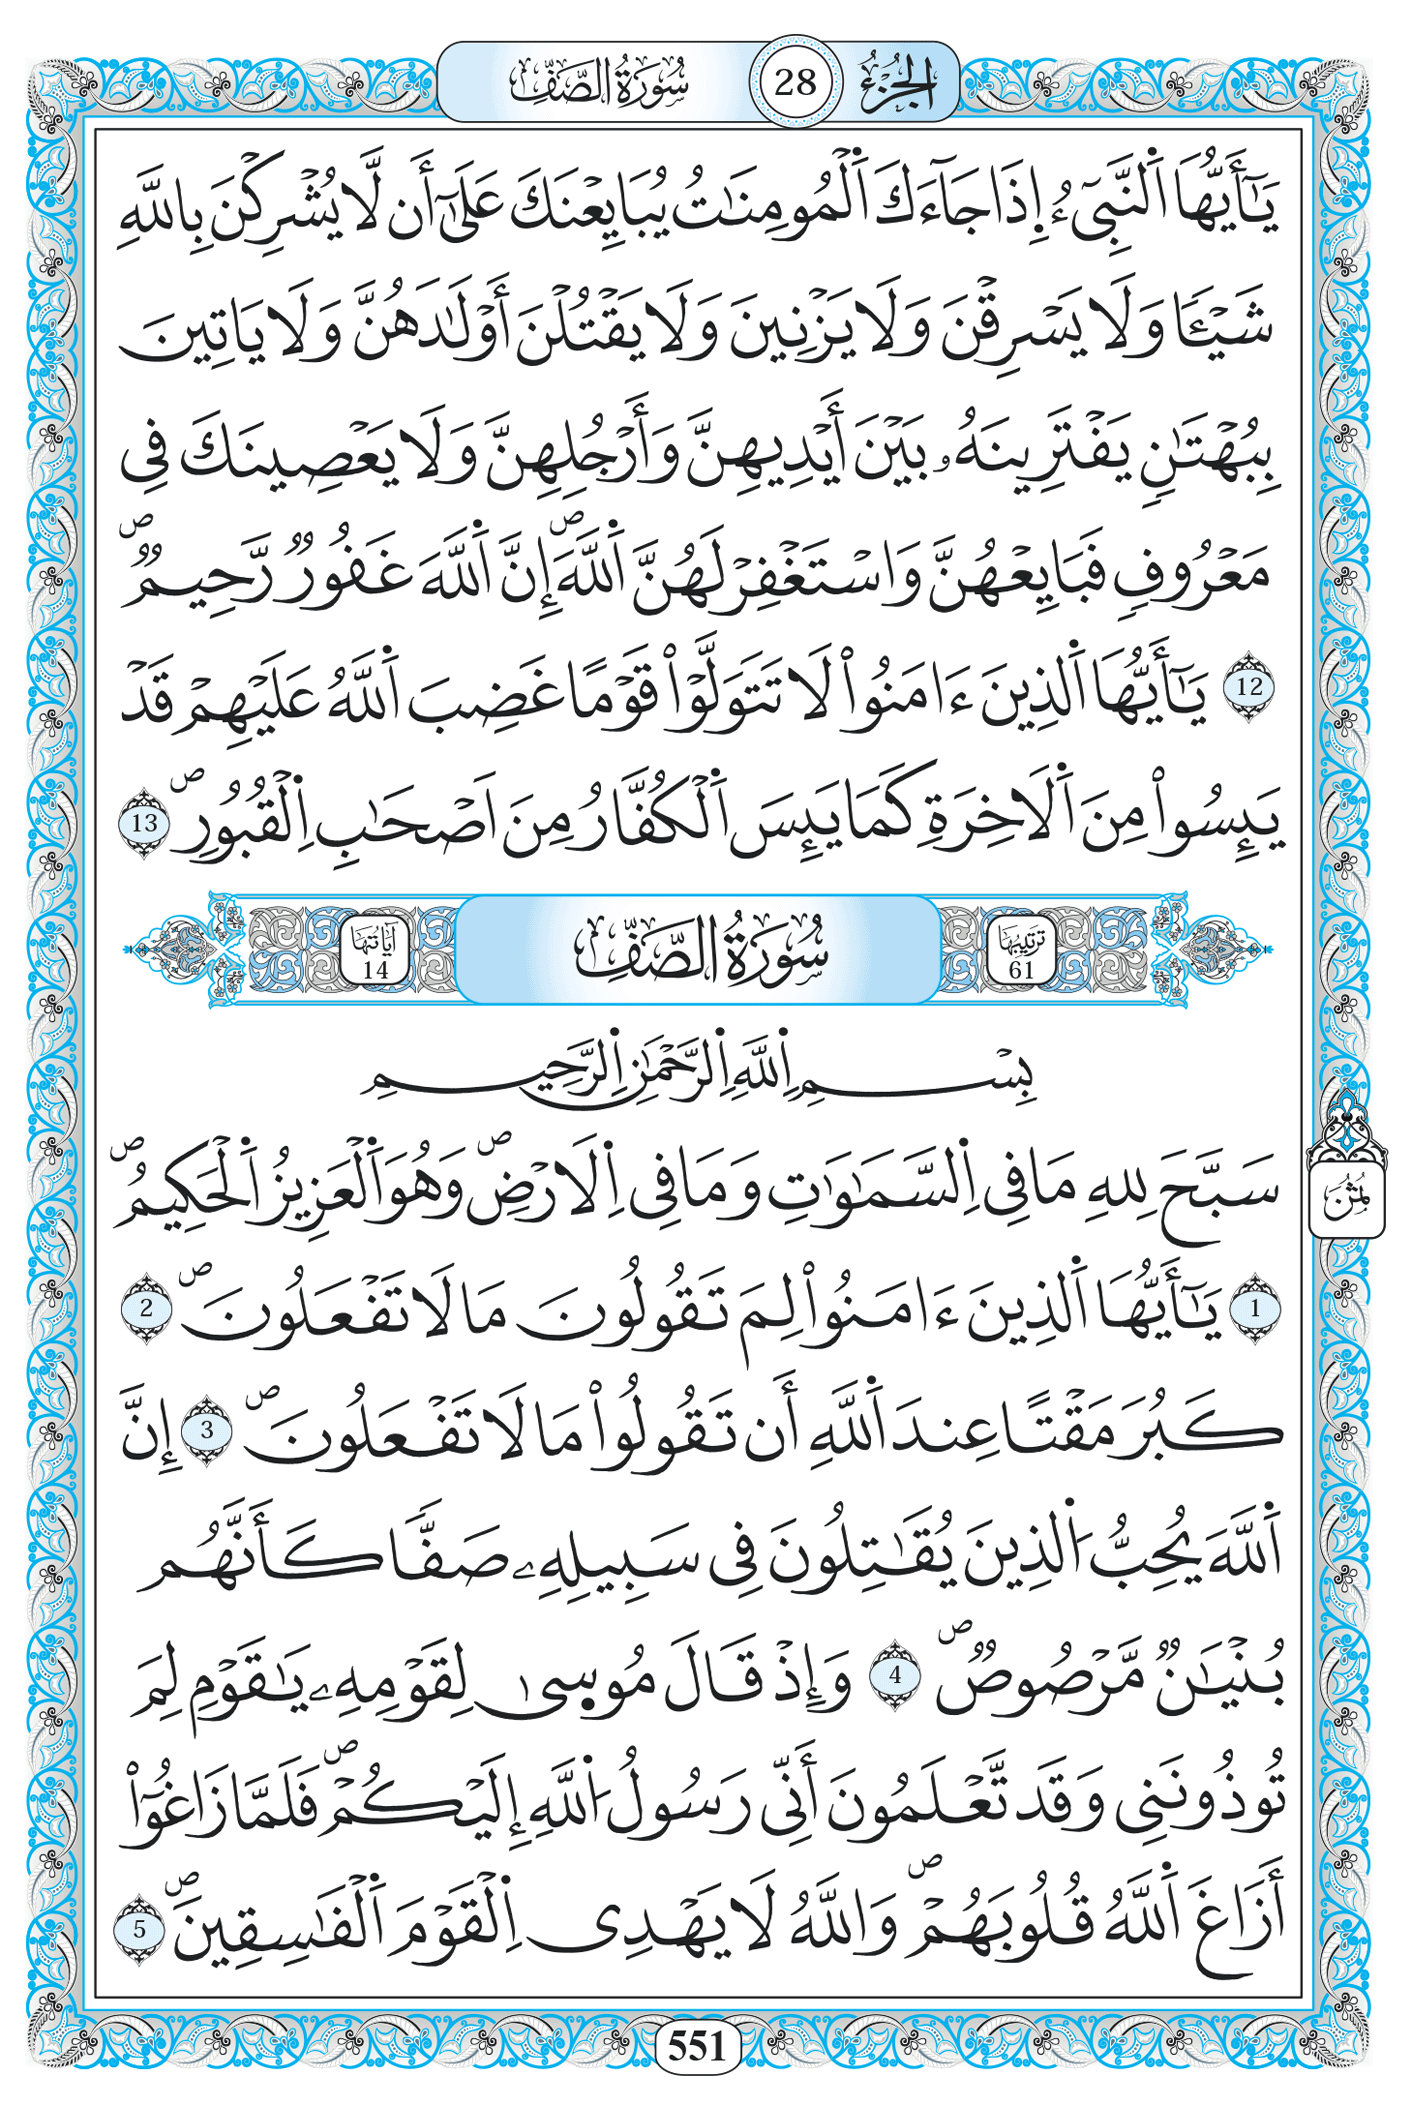 سُورَةُ الصَّفِّ 28 الجُزْءُ
يَٰٓأَيُّهَا اَ۬لنَّبِيٓءُ اِ۪ذَا جَآءَكَ اَ۬لْمُومِنَٰتُ يُبَايِعْنَكَ عَلَىٰٓ أَن لَّا يُشْرِكْنَ بِاللَّهِ
شَيْـٔاٗ وَلَا يَسْرِقْنَ وَلَا يَزْنِينَ وَلَا يَقْتُلْنَ أَوْلَٰدَهُنَّ وَلَا يَاتِينَ
بِبُهْتَٰنٖ يَفْتَرِينَهُۥ بَيْنَ أَيْدِيهِنَّ وَأَرْجُلِهِنَّ وَلَا يَعْصِينَكَ فِي
مَعْرُوفٖ فَبَايِعْهُنَّ وَاسْتَغْفِرْ لَهُنَّ اَ۬للَّهَ ۖ إِنَّ اَ۬للَّهَ غَفُورٞ رَّحِيمٞ ۖ
12 يَٰٓأَيُّهَا اَ۬لذِينَ ءَامَنُواْ لَا تَتَوَلَّوْاْ قَوْماً غَضِبَ اَ۬للَّهُ عَلَيْهِمْ قَدْ
يَئِسُواْ مِنَ اَ۬لَاخِرَةِ كَمَا يَئِسَ اَ۬لْكُفَّارُ مِنَ اَصْحَٰبِ اِ۬لْقُبُورِ ۖ 13
ترتيبها 61 سُورَةُ الصَّفِّ آياتها 14
بِسْمِ اِ۬للَّهِ اِ۬لرَّحْمَٰنِ اِ۬لرَّحِيمِ
سَبَّحَ لِلهِ مَا فِي اِ۬لسَّمَٰوَٰتِ وَمَا فِي اِ۬لَارْضِ ۖ وَهُوَ اَ۬لْعَزِيزُ اُ۬لْحَكِيمُ ۖ
ثُمْن
1 يَٰٓأَيُّهَا اَ۬لذِينَ ءَامَنُواْ لِمَ تَقُولُونَ مَا لَا تَفْعَلُونَ ۖ 2
كَبُرَ مَقْتاً عِندَ اَ۬للَّهِ أَن تَقُولُواْ مَا لَا تَفْعَلُونَ ۖ 3 إِنَّ
اَ۬للَّهَ يُحِبُّ اُ۬لذِينَ يُقَٰتِلُونَ فِي سَبِيلِهِۦ صَفّاٗ كَأَنَّهُم
بُنْيَٰنٞ مَّرْصُوصٞ ۖ 4 وَإِذْ قَالَ مُوسىٰ لِقَوْمِهِۦ يَٰقَوْمِ لِمَ
تُوذُونَنِي وَقَد تَّعْلَمُونَ أَنِّي رَسُولُ اُ۬للَّهِ إِلَيْكُمْ ۖ فَلَمَّا زَاغُوٓاْ
أَزَاغَ اَ۬للَّهُ قُلُوبَهُمْ ۖ وَاللَّهُ لَا يَهْدِي اِ۬لْقَوْمَ اَ۬لْفَٰسِقِينَ ۖ 5
551